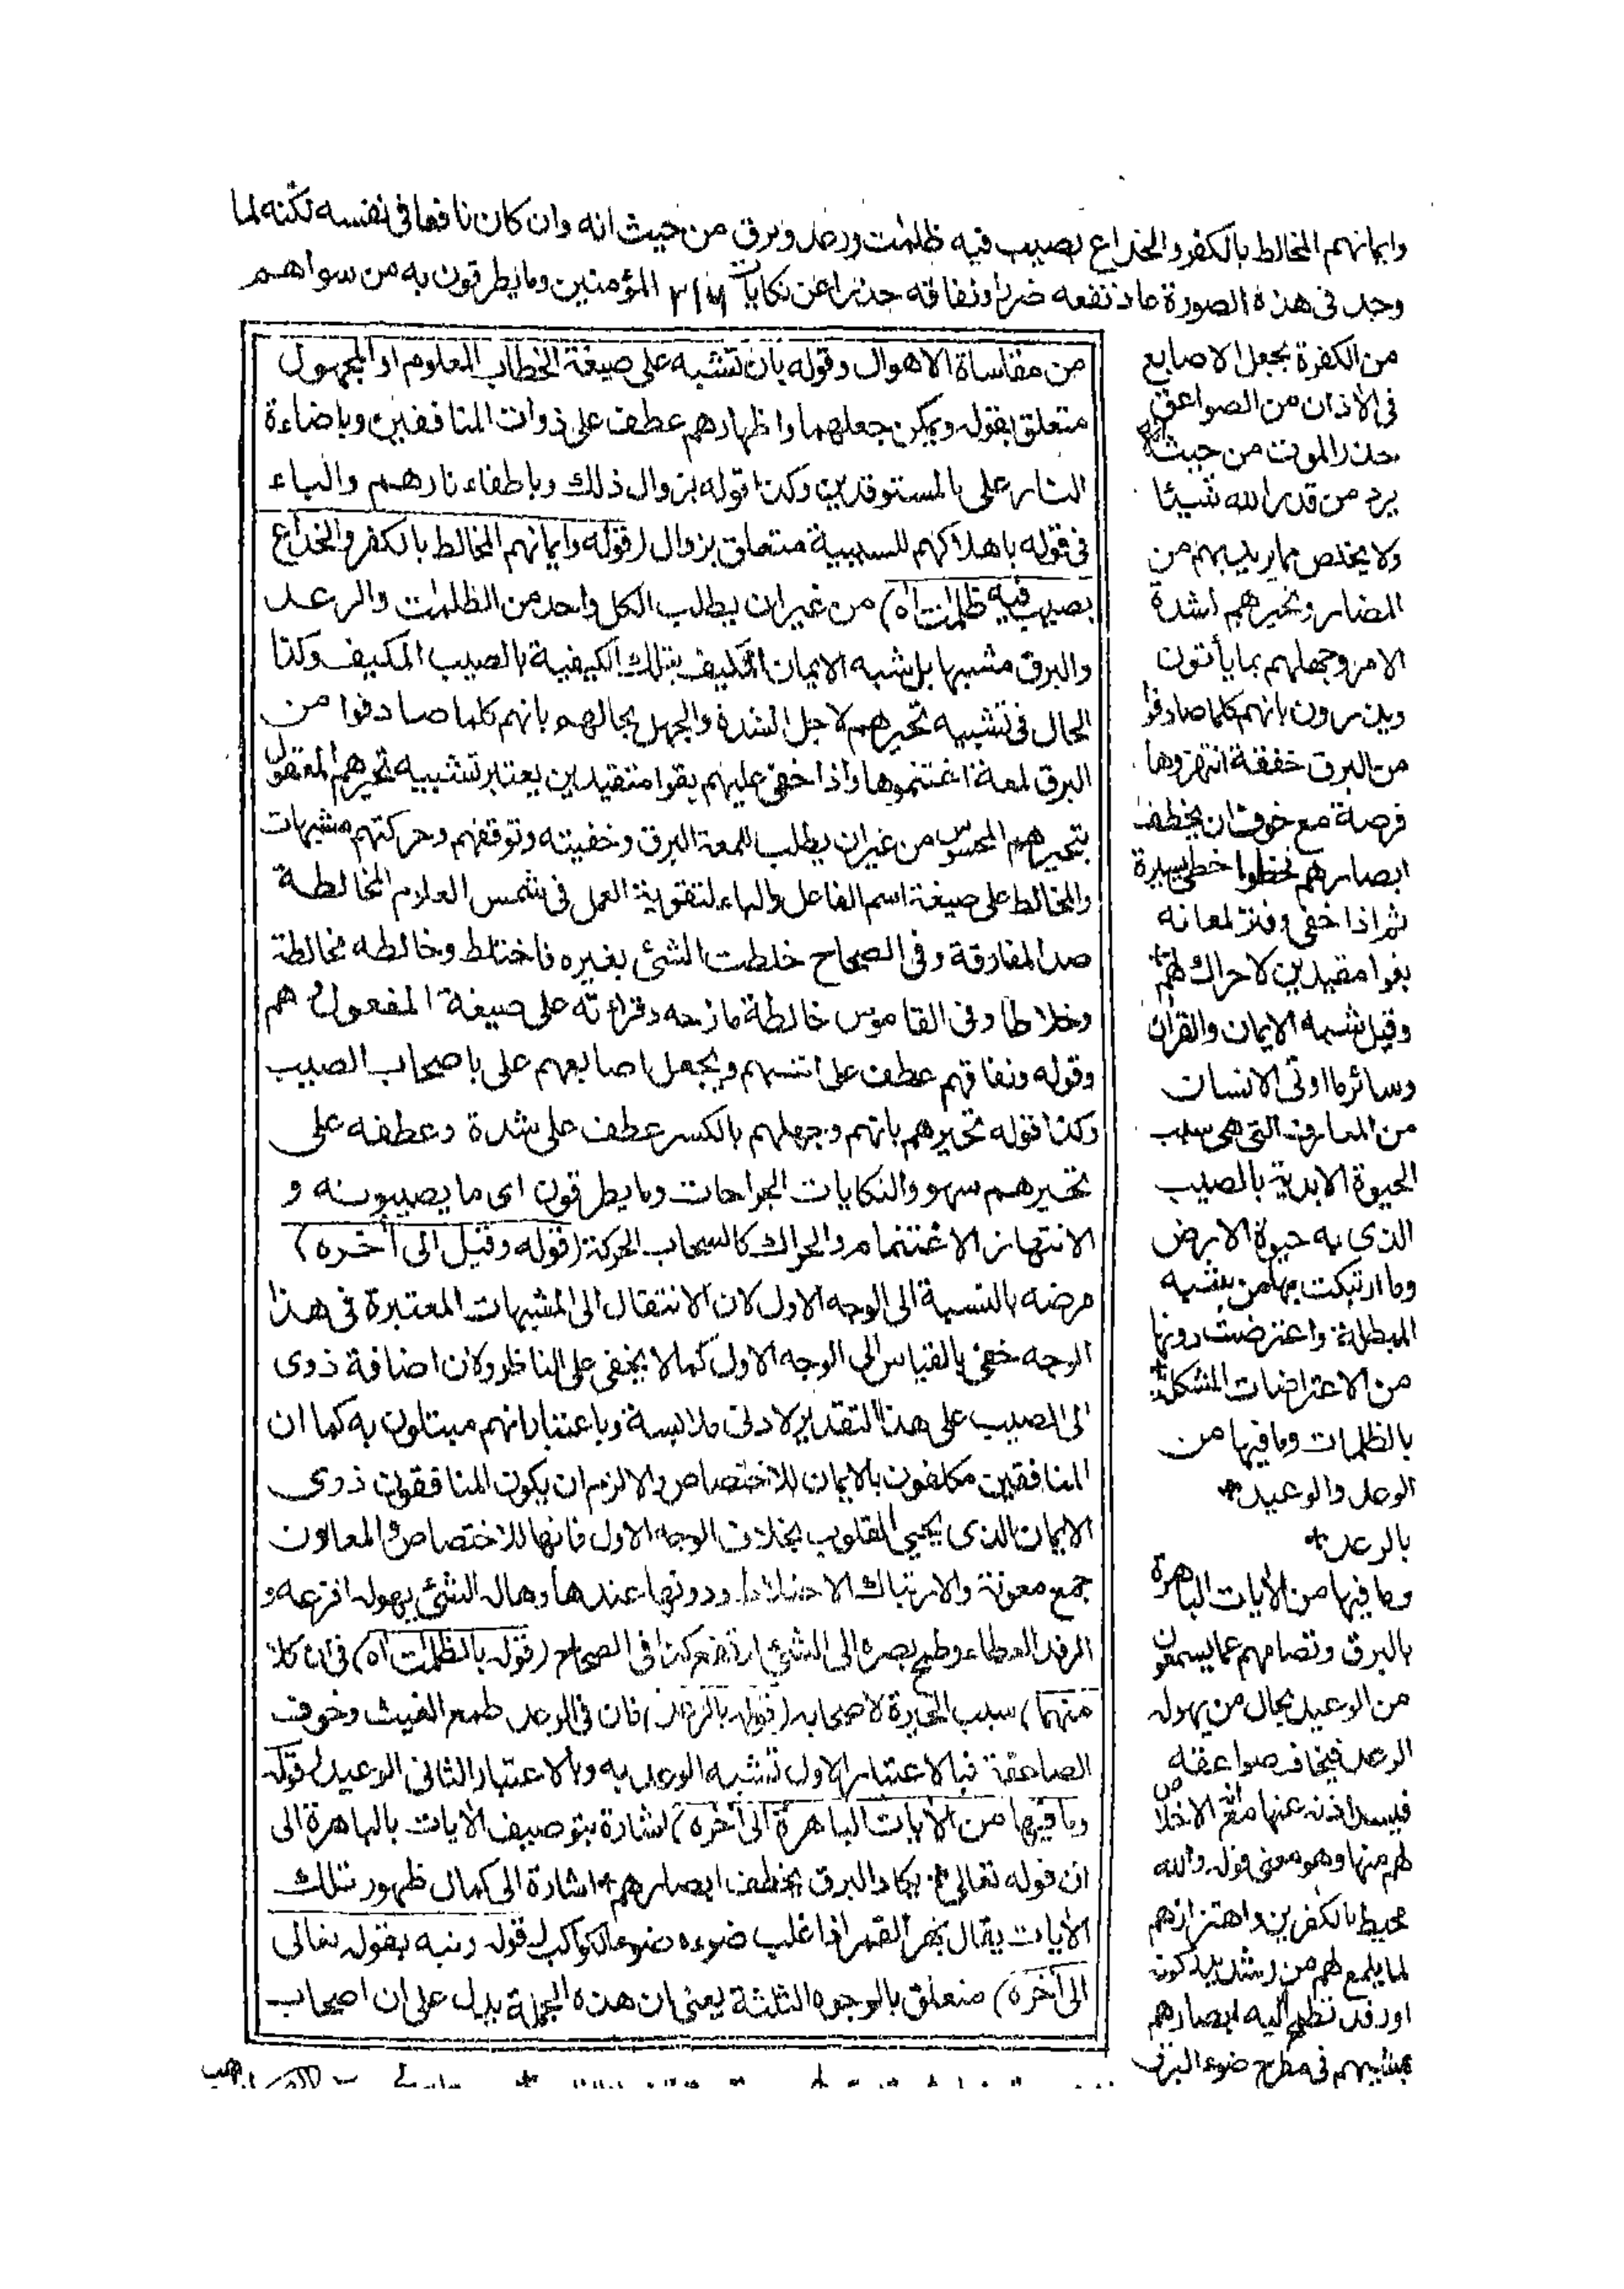 وايمانهم المخالط بالكفر والخداع بصيب فيه ظلمٰت ورعد وبرق من حيث انه وان كان نافعا فى نفسه لكنه لما
وجد فى هذه الصورة عاد نفعه ضرا ونفاقه حذرا عن نكايات المؤمنين وما يطرقون به من سواهم
من الكفرة بجعل الاصابع
فى الاذان من الصواعق
حذر الموت من حيث انه
يرد من قدر الله شيئا
ولا يخلص مما يريد بهم من
المضار وتحيرهم لشدة
الامر وجهلهم بما يأتون
ويذرون بانهم كلما صادفوا
من البرق خفقة انتهزوها
فرصة مع خوف ان يخطف
ابصارهم فخطوا خطى يسيرة
ثم اذا خفى وفتر لمعانه
بقوا مقيدين لا حراك لهم
وقيل شبه الايمان والقرأن
وسائر ما اوتى الانسان
من المعارف التى هى سبب
الحيوة الابدية بالصيب
الذى به حيوة الارض
وما ارتبكت بها من شبه
المبطلة واعترضت دونها
من الاعتراضات المشكلة
بالظلمات وما فيها من
الوعد والوعيد
بالرعد
وما فيها من الأيات الباهرة
بالبرق وتصامهم عما يسمعون
من الوعيد بحال من يهوله
الرعد فيخاف صواعقه
فيسد اذنه عنها مع انه لا خلاص
لهم منها وهو معنى قوله والله
محيط بالكفرين واهتزازهم
لما يلمع لهم من رشد يدركونه
او رفد تطمح اليه ابصارهم
بمشيهم فى مطرح ضوء البرق
من مقاساة الاهوال وقوله بان تشبه على صيغة الخطاب المعلوم او المجهول
متعلق بقوله ويمكن جعلهما واظهارهم عطف على ذوات المنافقين وباضاءة
النار على بالمستوقدين وكذا قوله بزوال ذلك وباطفاء نارهم والباء
فى قوله باهلاكهم للسببية متعلق بزوال (قوله وايمانهم المخالط بالكفر والخداع
بصيب فيه ظلمات اه) من غير ان يطلب الكل واحد من الظلمٰت والرعد
والبرق مشبها بل شبه الايمان المكيف بتلك الكيفية بالصيب المكيف وكذا
الحال فى تشبيه تحيرهم لاجل الشدة والجهل بحالهم بانهم كلما صادفوا من
البرق لمعة اغتنموها واذا خفى عليهم بقوا متقيدين يعتبر تشبيه تحيرهم المعقول
بتحيرهم المحسوس من غير ان يطلب للمعة البرق وخفيته وتوقفهم وحركتهم مشبهات
والمخالط على صيغة اسم الفاعل والباء لتقوية العمل فى شمس العلوم المخالطة
ضد المفارقة وفى الصحاح خلطت الشئ بغيره فاختلط وخالطه مخالطة
وخلاطا وفى القاموس خالطة مازجه وقراءته على صيغة المفعول وهم
وقوله ونفاقهم عطف على انفسهم وبجعل اصابعهم على باصحاب الصيب
وكذا قوله تحيرهم بانهم وجهلهم بالكسر عطف على شدة وعطفه على
تحيرهم سهو والنكايات الجراحات وما يطرقون اى ما يصيبونه و
الانتهاز الاغتنام والحراك كالسحاب الحركة (قوله وقيل الى أخره)
مرضه بالنسبة الى الوجه الاول لان الانتقال الى المشبهات المعتبرة فى هذا
الوجه خفى بالقياس الى الوجه الاول كما لا يخفى على الناظر ولان اضافة ذوى
الى الصيب على هذا التقدير لادنى ملابسة وباعتبار انهم مبتلون به كما ان
المنافقين مكلفون بالايمان للاختصاص والا لزم ان يكون المنافقون ذوى
الايمان الذى يحيى القلوب بخلاف الوجه الاول فانها للاختصاص والمعاون
جمع معونة والارتباك الاختلاط ودونها عندها وهاله الشئ يهوله افزعه و
الرفد العطاء وطمح بصره الى الشئ ارتفع كذا فى الصحاح (قوله بالظلمٰت اه) فى ان كلا
منهما سبب الحيرة لاصحابه (قوله بالرعد) فان فى الوعد طمع الغيث وخوف
الصاعقة فبالاعتبار الاول تشبه الوعد به وبالاعتبار الثانى الوعيد (قوله
وما فيها من الأيات الباهرة الى أخره) اشارة بتوصيف الأيات بالباهرة الى
ان قوله تعالى * يكاد البرق يخطف ابصارهم * اشارة الى كمال ظهور تلك
الأيات يقال بهر القمر اذا غلب ضوءه ضوء الكواكب (قوله ونبه بقوله تعالى
الى أخره) متعلق بالوجوه الثلثة يعنى ان هذه الجملة يدل على ان اصحاب